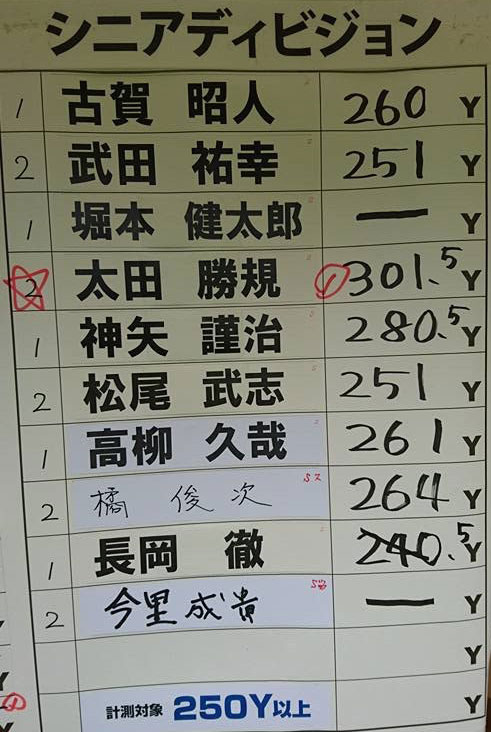 シニアディビジョン
1 古賀 昭人 260 Y
2 武田 祐幸 251 Y
1 堀本 健太郎 — Y
2 太田 勝規 ① 301.5 Y
1 神矢 謹治 280.5 Y
2 松尾 武志 251 Y
1 高柳 久哉 261 Y
2 橘 俊次 264 Y
1 長岡 徹 240.5 Y
2 今里 成貴 — Y
Y
計測対象 250Y以上 Y